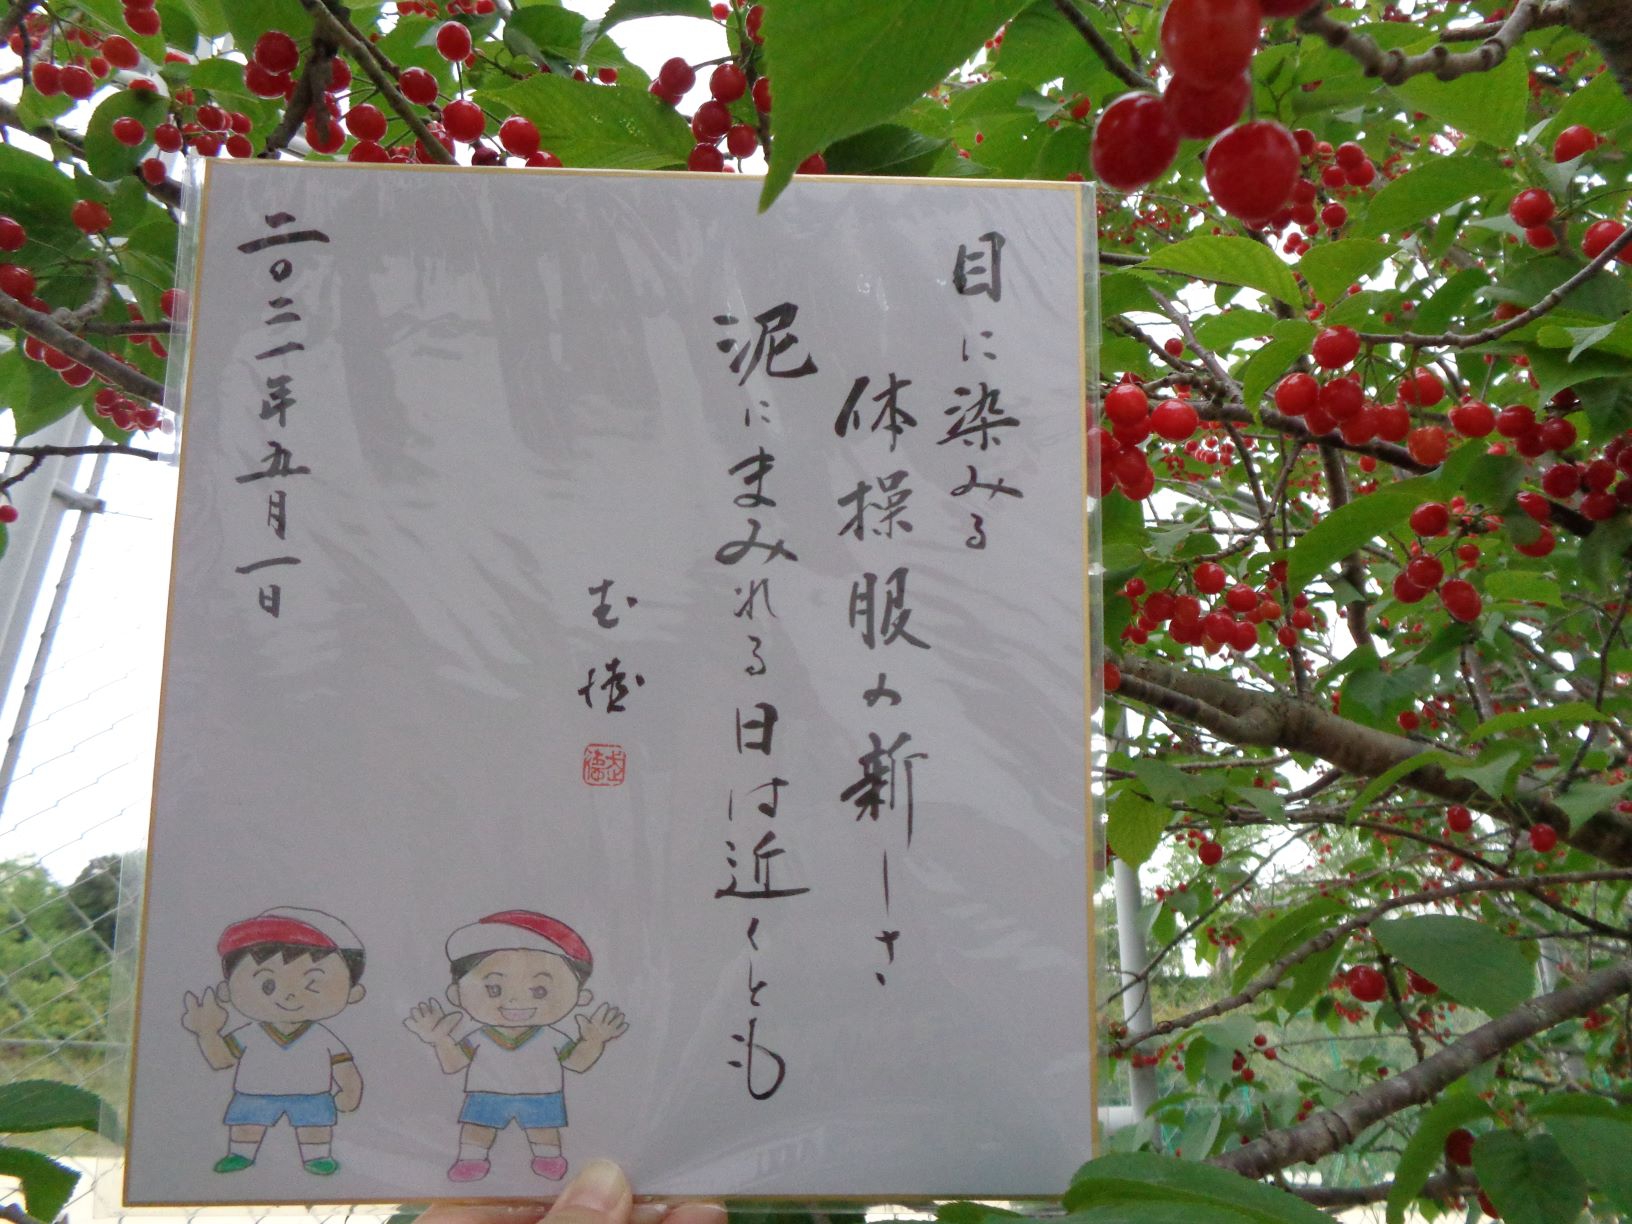 目に染みる
体操服の新しさ
泥にまみれる日は近くとも
武徳
二〇二一年五月一日